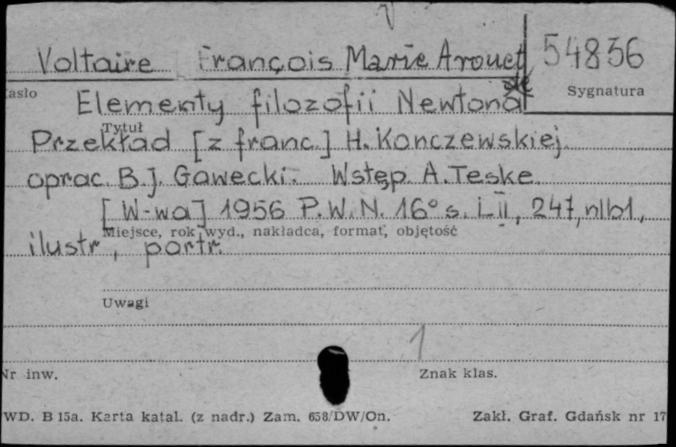 Voltaire François Marie Arouet 54836
asło Sygnatura
Elementy filozofii Newtona de
Tytuł
Przekład [z franc.] H. Konczewskiej.
oprac. B.J. Gawecki. Wstęp A. Teske
[W-wa] 1956 P.W.N. 16° s. LII, 247, nlb1,
Miejsce, rok wyd., nakładca, format, objętość
ilustr., portr.
Uwagi
1
Nr inw. Znak klas.
WD. B 15a. Karta katal. (z nadr.) Zam. 658/DW/On. Zakł. Graf. Gdańsk nr 17